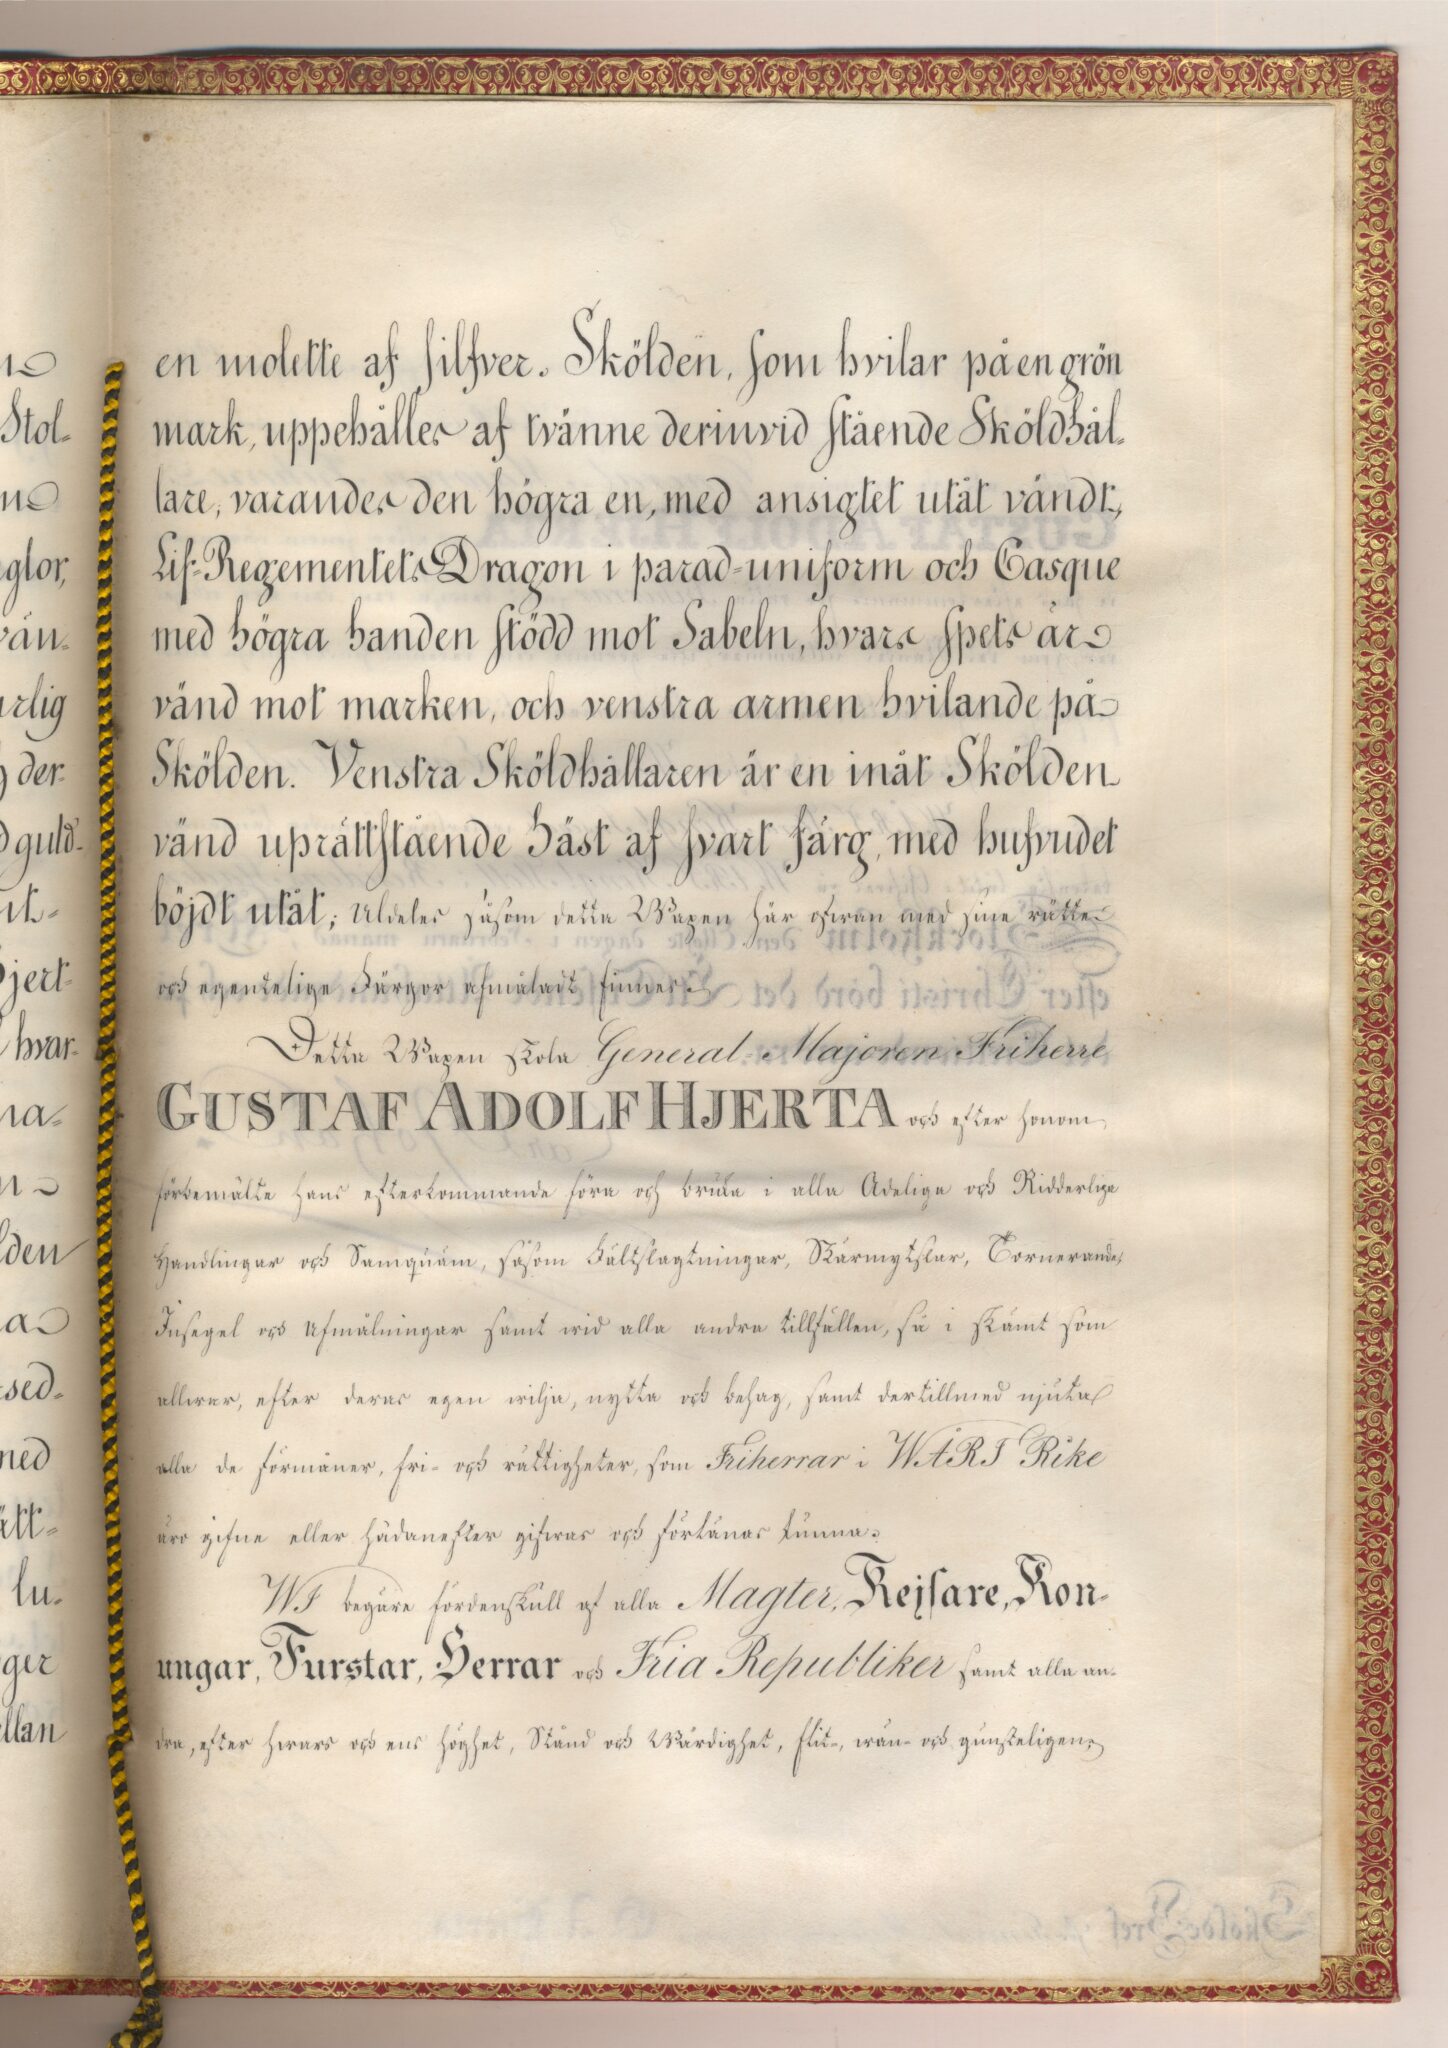 en molette af silfver. Skölden, som hvilar på en grön
mark, uppehålles af tvänne derinvid stående Sköldhål-
lare, varandes den högra en, med ansigtet utåt vändt,
Lif-Regementets Dragon i parad-uniform och Casque
med högra handen stödd mot Sabeln, hvars spets är
vänd mot marken, och venstra armen hvilande på
Skölden. Venstra Sköldhållaren är en inåt Skölden
vänd uprättstående Häst af svart färg, med hufvudet
böjdt utåt; Aldeles såsom detta Wapen här ofwan med sine rätte
och egentelige Färgor afmåladt finnes.
Detta Wapen skola General-Majoren Friherre
GUSTAF ADOLF HJERTA och efter honom
förbemälte hans efterkommande föra och bruka i alla Adeliga och Ridderliga
Handlingar och Samquäm, såsom Fältslagtningar, Skärmytslar, Tornerande,
Insegel och Afmålningar samt wid alla andra tillfällen, så i skämt som
allwar, efter deras egen wilja, nytta och behag, samt dertillmed njuta
alla de förmåner, fri- och rättigheter, som Friherrar i WÅRT Rike
äro gifne eller hädanefter gifwas och förtänas kunna.
WI begäre fördenskull af alla Magter, Kejsare, Kon-
ungar, Furstar, Herrar och Fria Republiker samt alla an-
dra, efter hwars och ens höghet, Stånd och Wärdighet, flit-, wän- och gunsteligen,
Stol-
glor,
vän-
der-
guld-
Hjert-
hvar-
med
lu-